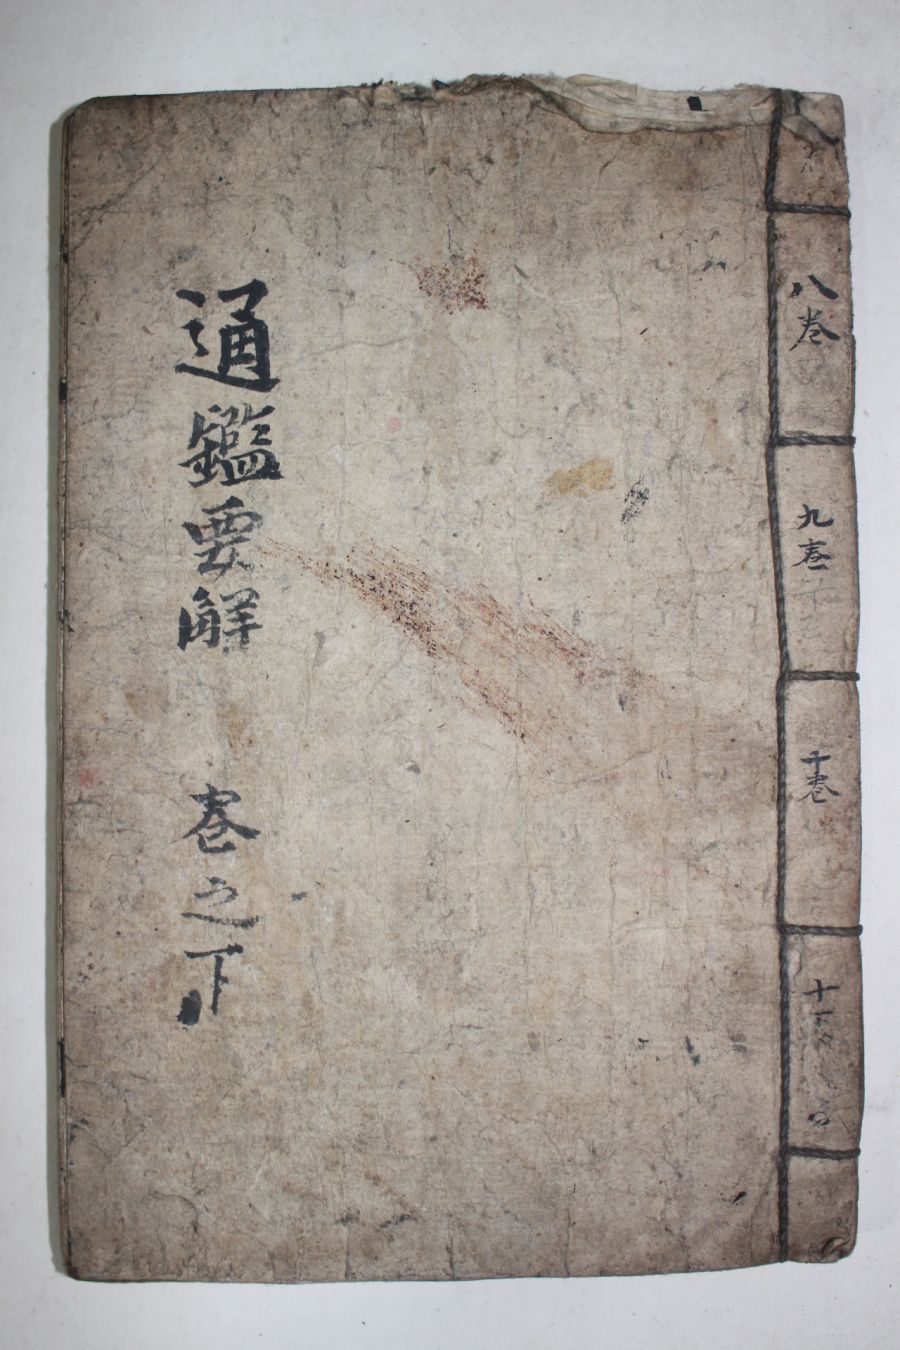 八卷
九卷
十卷
十一
通鑑要解 卷之下